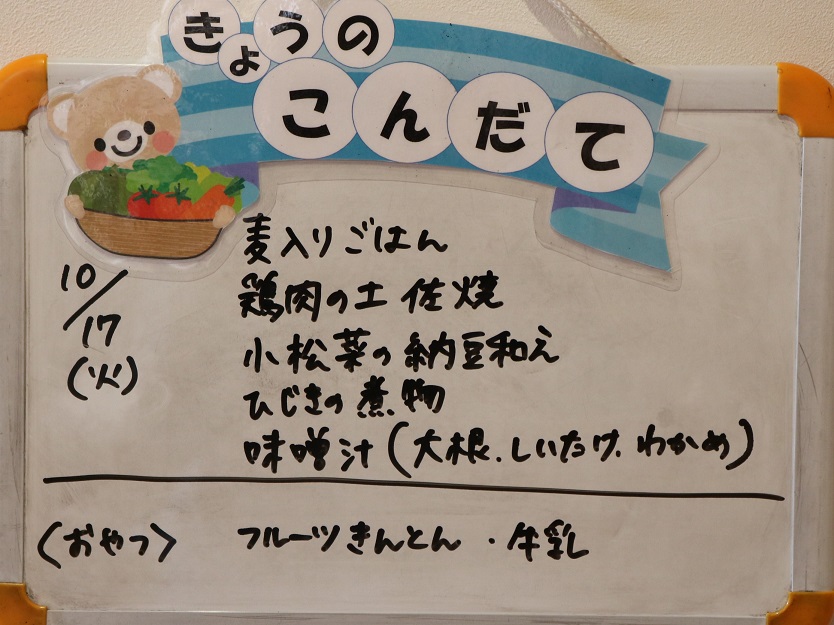 きょうの
こんだて
10/17(火)
麦入りごはん
鶏肉の土佐焼
小松菜の納豆和え
ひじきの煮物
味噌汁(大根.しいたけ.わかめ)
〈おやつ〉 フルーツきんとん ・牛乳